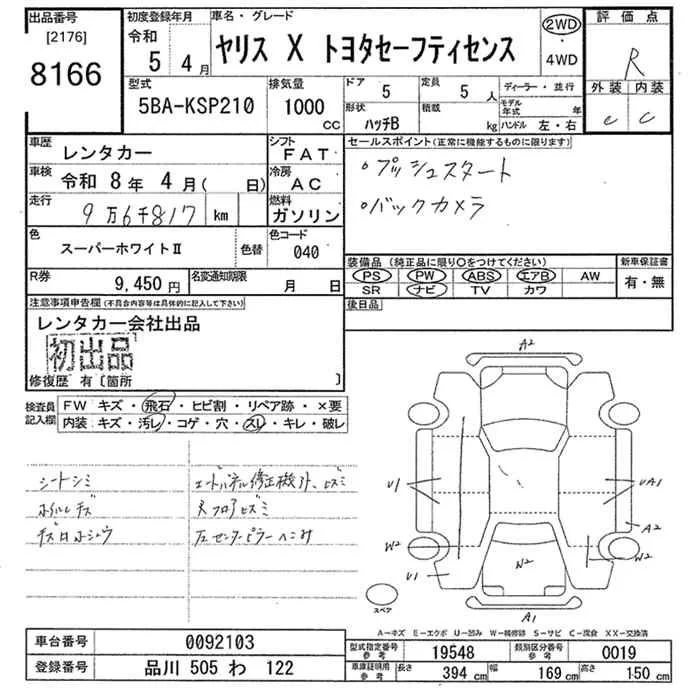 出品番号
[2176]
8166
初度登録年月
令和
5年 4月
車名・グレード
ヤリス X トヨタセーフティセンス
2WD
・
4WD
評価点
R
外装 内装
e c
型式
5BA-KSP210
排気量
1000
CC
ドア
5
定員
5人
形状
ハッチB
積載
kg
ディーラー・並行
モデル年式 年
ハンドル 左・右
車歴
レンタカー
シフト
FAT
車検
令和 8年 4月( 日)
冷房
AC
走行
9万6千817 km
燃料
ガソリン
色
スーパーホワイトⅡ
色替
色コード
040
R券
9,450円
名変通知期限
月 日
セールスポイント(正常に機能するものに限ります)
・プッシュスタート
・バックカメラ
装備品(純正品に限り〇をつけてください)
PS PW ABS エアB AW
SR ナビ TV カワ
新車保証書
有・無
後日品
注意事項申告欄(不具合内容等は具体的に記入して下さい)
レンタカー会社出品
初出品
修復歴 有〔箇所 〕
検査員
記入欄
FW キズ・飛石・ヒビ割・リペア跡・×要
内装 キズ・汚レ・コゲ・穴・スレ・キレ・破レ
シートシミ
ホイルキズ
キズ凹ホシュウ
エンドパネル修正機外、ヒズミ
Rフロアヒズミ
左センターピラーヘコミ
A2
U1
UA1
A2
W2
W2
W2
U1
A1
スペア
A-キズ E-エクボ U-凹み W-補修跡 S-サビ C-腐食 XX-交換済
車台番号
0092103
登録番号
品川 505 わ 122
型式指定番号
参考
19548
類別区分番号
参考
0019
車庫証明用
参考
長さ
394 cm
幅
169 cm
高さ
150 cm